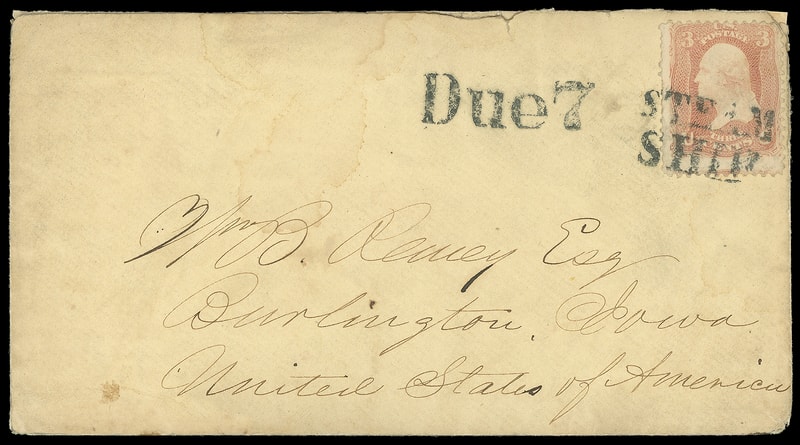 U.S.
POSTAGE
3 3
Due 7
STEAM
SHIP
Wm B. Remey Esq
Burlington, Iowa.
United States of America